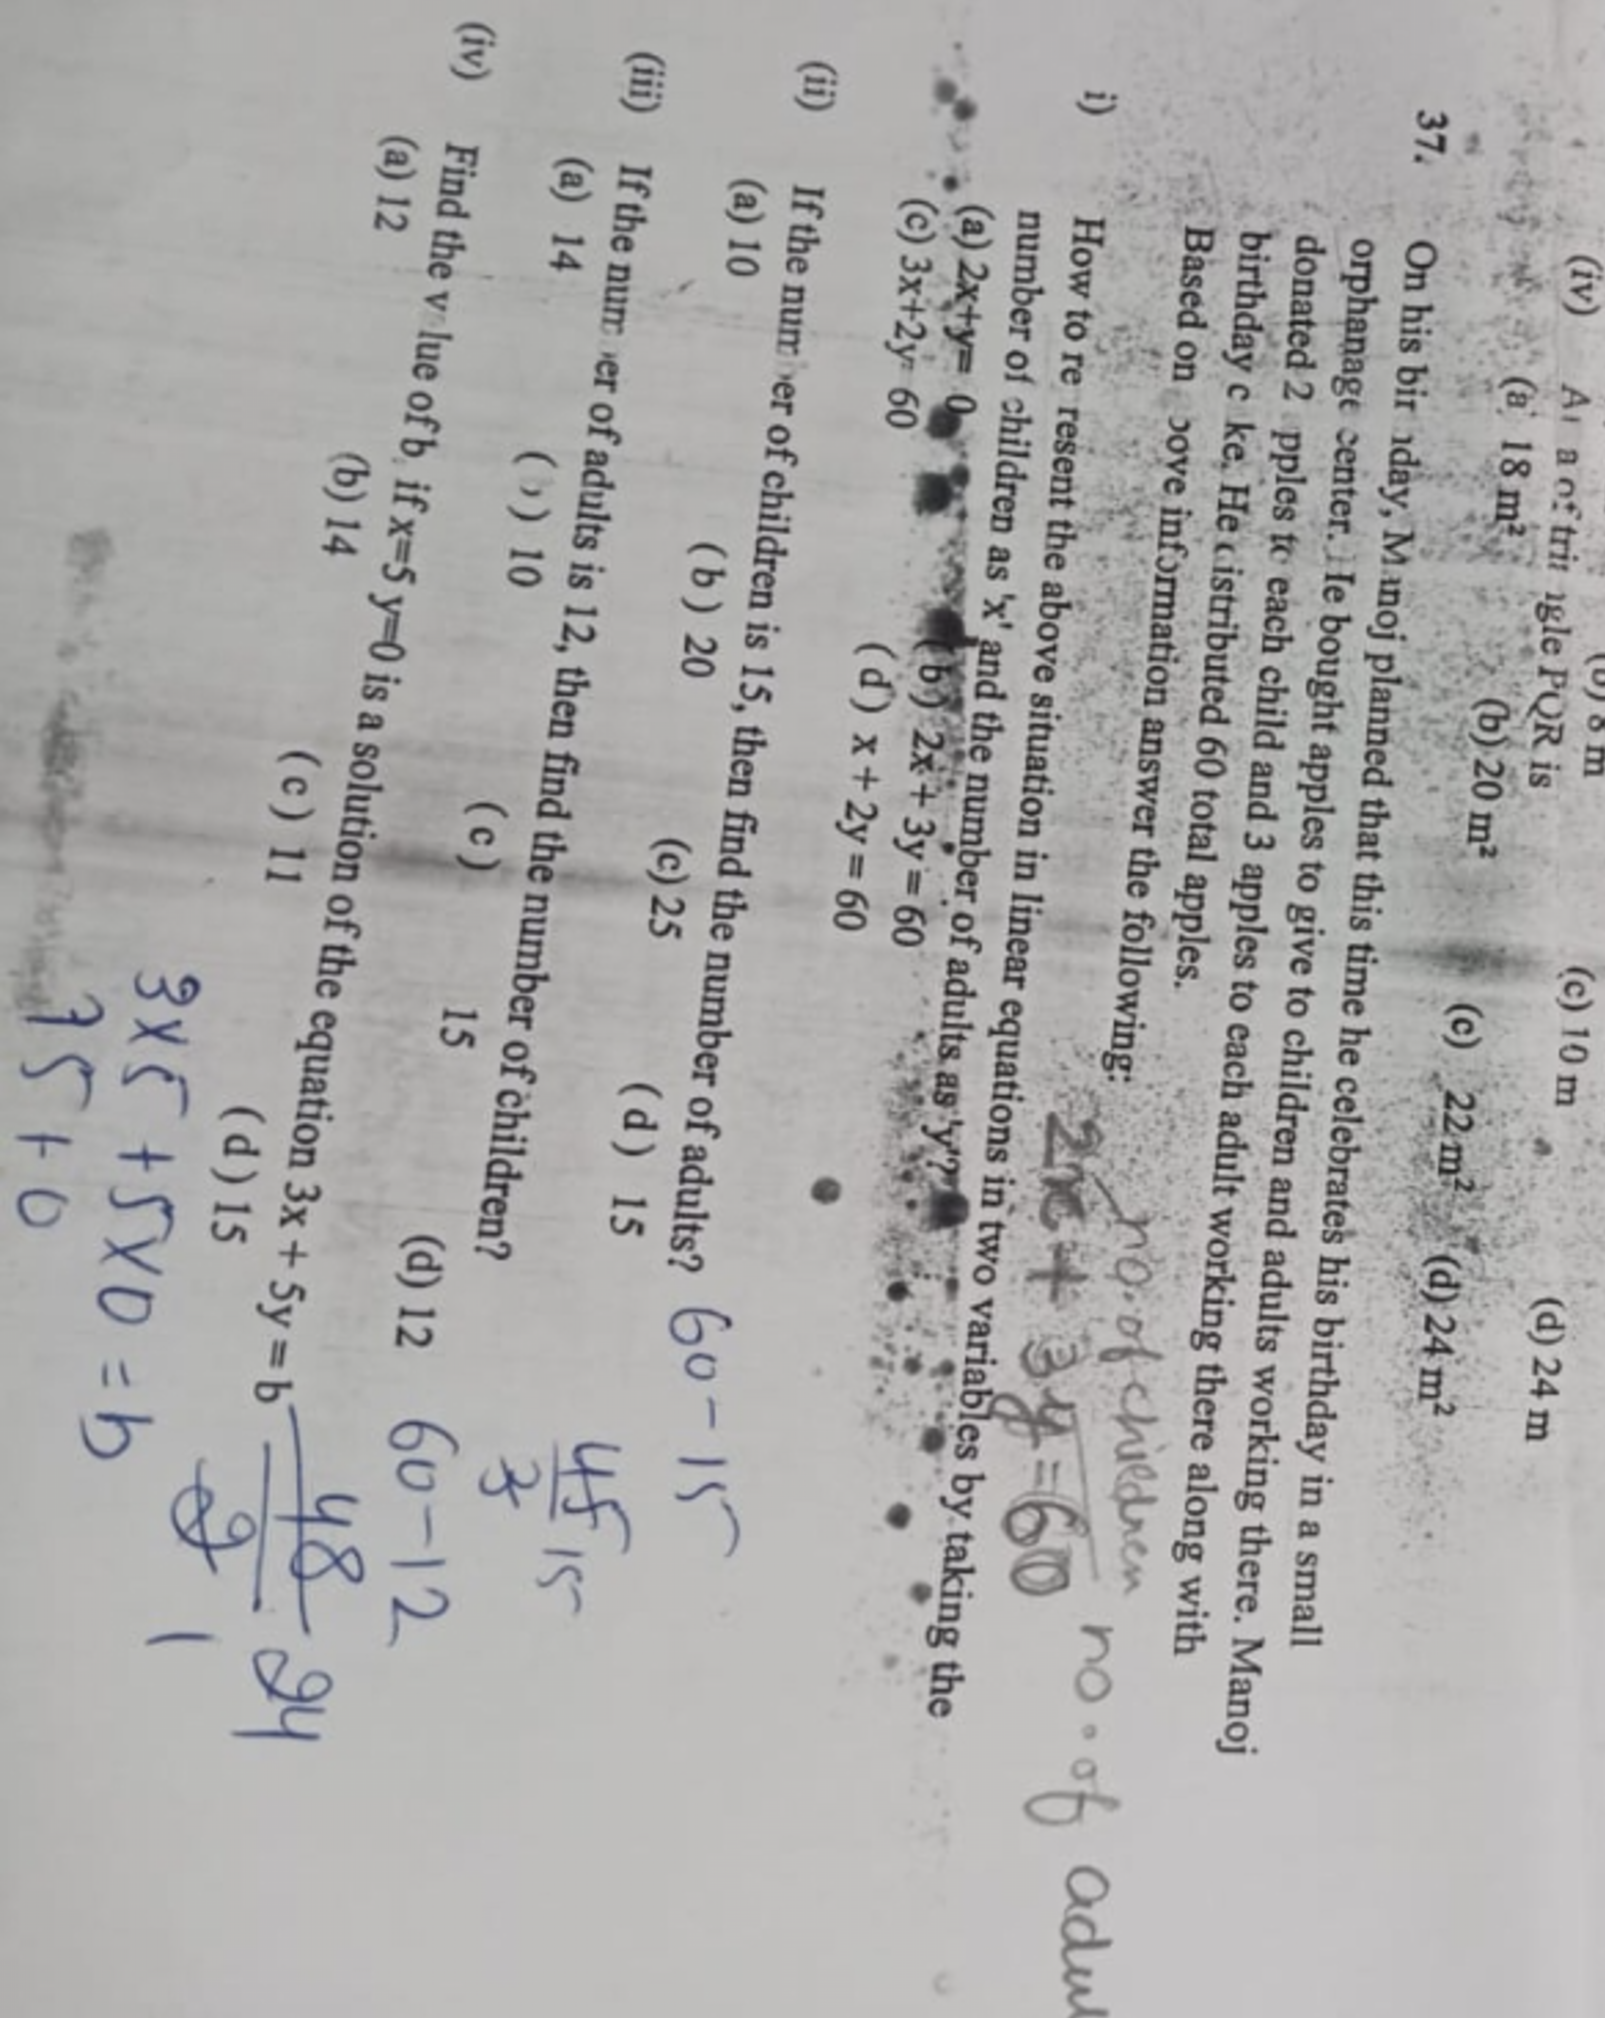 (b) 8 m
(c) 10 m
(d) 24 m
(iv) A a of tri ngle PQR is
(a) 18 m²
(b) 20 m²
(c) 22 m²
(d) 24 m²
37. On his bir hday, Manoj planned that this time he celebrates his birthday in a small
orphanage center. He bought apples to give to children and adults working there. Manoj
donated 2 pples to each child and 3 apples to each adult working there along with
birthday c ke. He distributed 60 total apples.
Based on bove information answer the following:
no. of children no. of
2x + 3y = 60
i) How to re resent the above situation in linear equations in two variables by taking the
number of children as 'x' and the number of adults as 'y'?
(a) 2x+y= 0 (b) 2x + 3y = 60
(c) 3x+2y= 60 (d) x + 2y = 60
(ii) If the number of children is 15, then find the number of adults? 60 - 15
(a) 10 (b) 20 (c) 25 (d) 15
45 15
3
(iii) If the number of adults is 12, then find the number of children?
(a) 14 (b) 10 (c) 15 (d) 12
60 - 12
48 24
2
1
(iv) Find the v lue of b, if x=5 y=0 is a solution of the equation 3x + 5y = b
(a) 12 (b) 14 (c) 11 (d) 15
3 x 5 + 5 x 0 = b